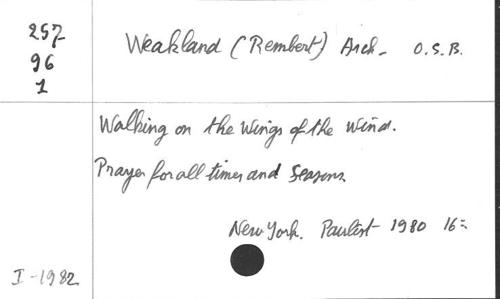 257
96
1
Weakland (Rembert) Arch. O.S.B.
Walking on the Wings of the Wind.
Prayer for all times and Seasons.
New York. Paulist 1980 16=
I-1982